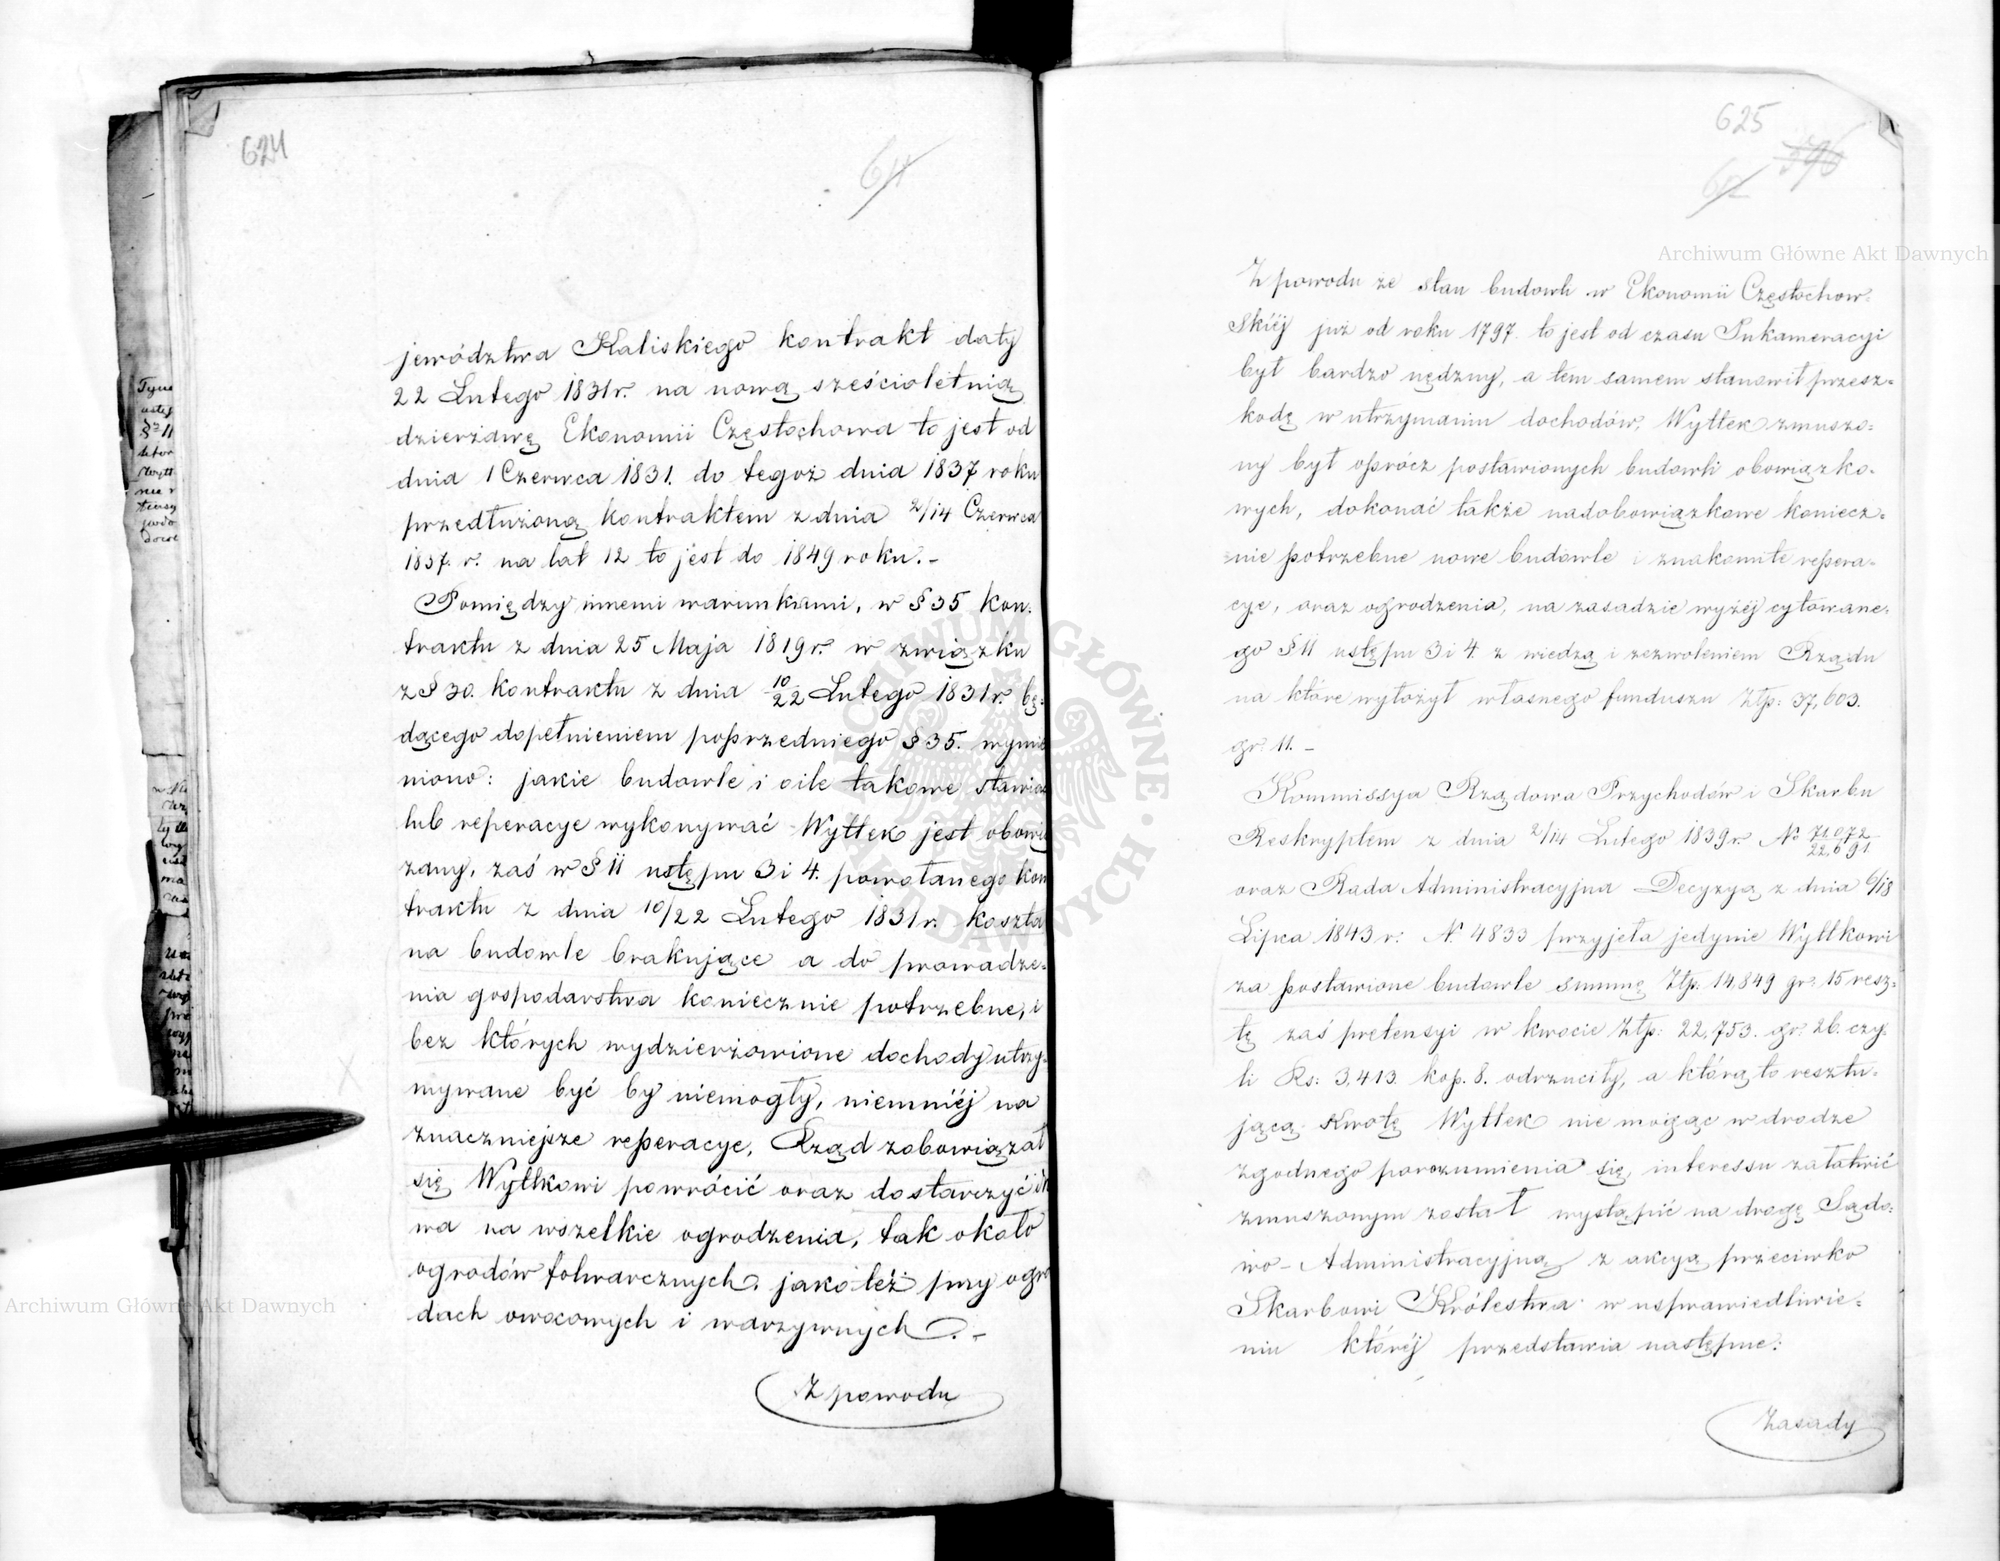 624
611
jewództwa Kaliskiego kontrakt daty
22 Lutego 1831 r. na nową sześcioletnią
dzierżawę Ekonomii Częstochowa to jest od
dnia 1 Czerwca 1831. do tegoż dnia 1837 roku
przedłużoną kontraktem z dnia 2/14 Czerwca
1837. r. na lat 12 to jest do 1849 roku. –
Pomiędzy innemi warunkami, w § 35 kon:
traktu z dnia 25 Maja 1819 r. w związku
z § 30. kontraktu z dnia 10/22 Lutego 1831 r. bę:
dącego dopełnieniem poprzedniego § 35. wymie
niono: jakie budowle i oile takowe stawiać
lub reperacye wykonywać Wyttek jest obowią
zany, zaś w § 11 ustępu 3 i 4. powołanego kon
traktu z dnia 10/22 Lutego 1831 r. koszta
na budowle brakujące a do prowadze:
nia gospodarstwa koniecznie potrzebne, i
bez których wydzierżawione dochody utrzy:
mywane być by niemogły, niemniéj na
znaczniejsze reperacye, Rząd zobowiązał
się Wyttkowi powrócić oraz dostarczyć
wa na wszelkie ogrodzenia, tak około
ogrodów folwarcznych, jako téż przy ogro
dach owocowych i warzywnych. –
Z powodu
625
612 376
Z powodu że stan budowli w Ekonomii Częstochow:
skiéj już od roku 1797. to jest od czasu Inkameracyi
był bardzo nędzny, a tem samem stanowił przesz:
kodę w utrzymaniu dochodów, Wyttek zmuszo:
ny był oprócz postawionych budowli obowiązko:
wych, dokonać także nadobowiązkowe koniecz:
nie potrzebne nowe budowle i znakomite repera:
cye, oraz ogrodzenia, na zasadzie wyżéj cytowane:
go § 11 ustępu 3 i 4. z wiedzą i zezwoleniem Rządu
na które wyłożył własnego funduszu Złp: 37,603.
gr. 11. –
Kommissya Rządowa Przychodów i Skarbu
Reskryptem z dnia 2/14 Lutego 1839 r. No 71,072/22,691
oraz Rada Administracyjna Decyzyą z dnia 6/18
Lipca 1843 r: N. 4833 przyjęła jedynie Wyttkowi
za postawione budowle summę Złp: 14,849 gr: 15 resz:
tę zaś pretensyi w kwocie Złp: 22,753. gr. 26. czy:
li Rs: 3,413. kop. 8. odrzuciły, a którą to resztu:
jącą kwotę Wyttek nie mogąc w drodze
zgodnego porozumienia się, interessu załatwić
zmuszonym został wystąpić na drogę Sądo:
wo-Administracyjną z akcyą przeciwko
Skarbowi Królestwa w usprawiedliwie:
niu któréj przedstawia następne:
Zasady
Archiwum Główne Akt Dawnych
Archiwum Główne Akt Dawnych
ARCHIWUM GŁÓWNE AKT DAWNYCH